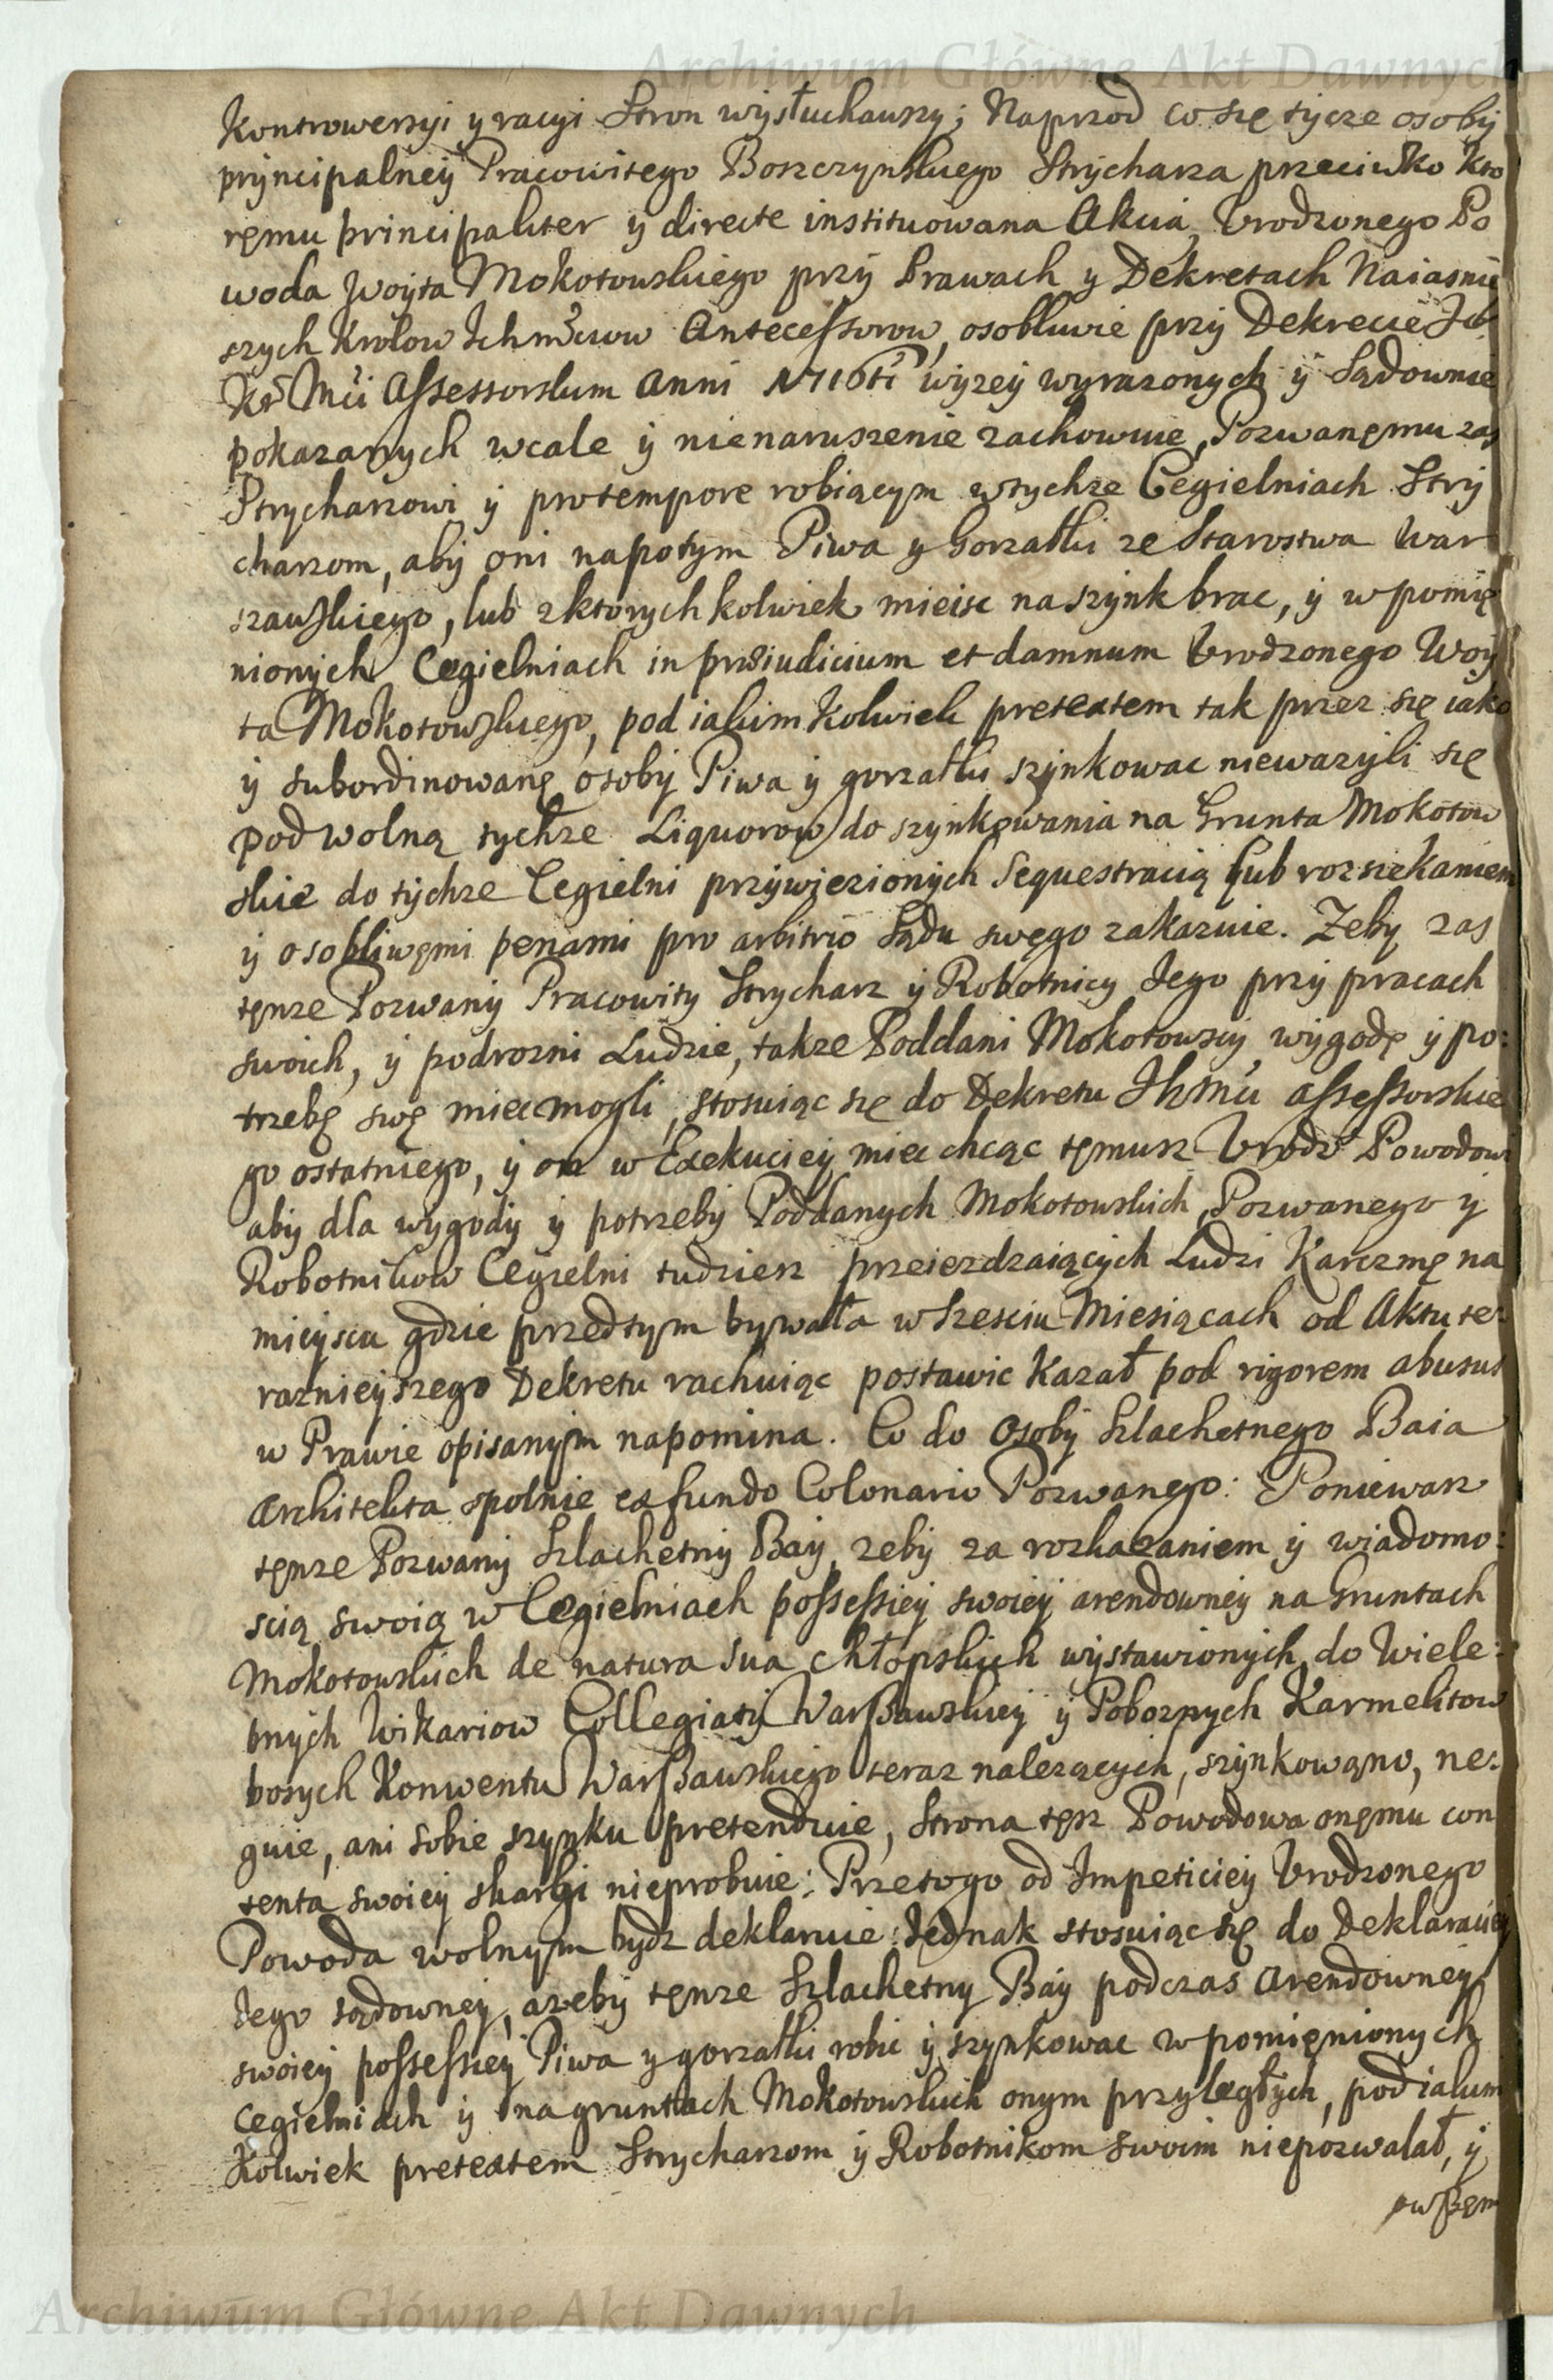 Archiwum Główne Akt Dawnych
Kontrowersyi y racyi Stron wysłuchawszy; Naprzod co się tycze osoby
pryncipalney Pracowitego Boszczynskiego Strycharza przeciwko kto
ręmu principaliter y directe instituowana Akcia, Urodzonego Po
woda Woyta Mokotowskiego przy Prawach y Dekretach Naiasniey
szych Krolow Ichmciow Antecessorow, osobliwie przy Dekrecie
Kr Mci Assessorskim Anni 1716ti wyzey wyrazonych y Sądownie
pokazanych wcale y nienaruszenie zachowuie, Pozwanęmu zas
Strycharzowi y protempore robiącym wtychze Cegielniach Stry
charzom, aby oni napotym Piwa y Gorzałki ze Starostwa War
szawskiego, lub zktorychkolwiek mieisc na szynk brac, y w pomię
nionych Cegielniach in præiudicium et damnum Urodzonego Woy
ta Mokotowskiego, pod iakimkolwiek pretextem tak przez się iako
y subordinowanę osoby Piwa y gorzałki szynkowac niewazyli się
pod wolną tychze Liquorow do szynkowania na Grunta Mokotow
skie do tychze Cegielni przywiezionych Sequestracią lub rozsiekaniem
y osobliwęmi penami pro arbitrio Sądu swego zakazuie. Zeby zas
tęnze Pozwany Pracowity Strycharz y Robotnicy Iego przy pracach
swoich, y podrozni Ludzie, takze Poddani Mokotowscy wygodę y po:
trzebę swę miec mogli, stosuiąc się do Dekretu Assessorskie
go ostatniego, y on w Exekuciey miec chcąc tęmusz Urodz Powodowi
aby dla wygody y potrzeby Poddanych Mokotowskich, Pozwanego y
Robotnikow Cegielni tudziesz przeiezdzaiących Ludzi Karczmę na
mieyscu gdzie przedtym bywała w Szesciu Miesiącach od Aktu te:
raznieyszego Dekretu rachuiąc postawic kazał pod rigorem abusus
w Prawie opisanym napomina. Co do Osoby Szlachetnego Baia
Architekta spolnie ex fundo Colonario Pozwanego: Poniewasz
tęnze Pozwany Szlachetny Bay, zeby za rozkazaniem y wiadomo:
scią swoią w Cegielniach possessiey swoiey arendowney na Gruntach
Mokotowskich de natura sua chłopskich wystawionych, do Wiele:
bnych Wikariow Collegiaty Warszawskiey y Poboznych Karmelitow
bosych Konwentu Warszawskiego teraz nalezących, szynkowąno, ne:
guie, ani sobie szynku pretenduie, Strona tęsz Powodowa onęmu con
tenta swoiey skargi nieprobuie: Przetogo od Impeticiey Urodzonego
Powoda wolnym bydz deklaruie: Iednak stosuiąc się do Deklaraciey
Iego sądowney, azeby tęnze Szlachetny Bay podczas arendowney
swoiey possessiey Piwa y gorzałki robic y szynkowac w pomięnionych
Cegielniach y na gruntach Mokotowskich onym przyległych, pod iakim
kolwiek pretextem Strycharzom y Robotnikom swoim niepozwalał, y
owszęm
Archiwum Główne Akt Dawnych